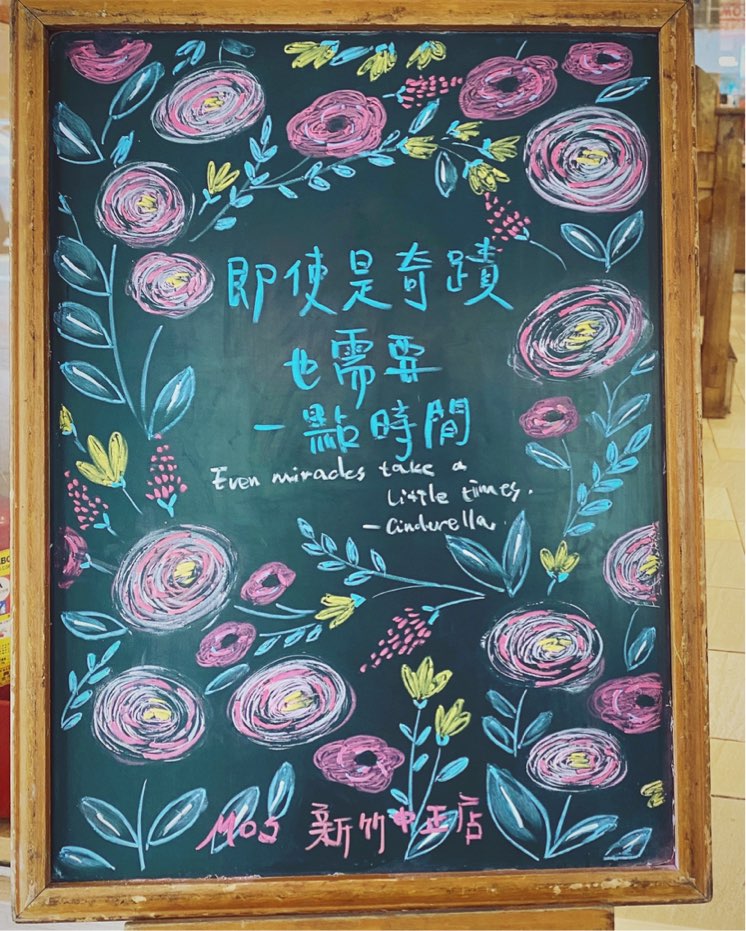 即使是奇蹟
也需要
一點時間
Even miracles take a
little times.
-Cinderella.
MOS 新竹中正店